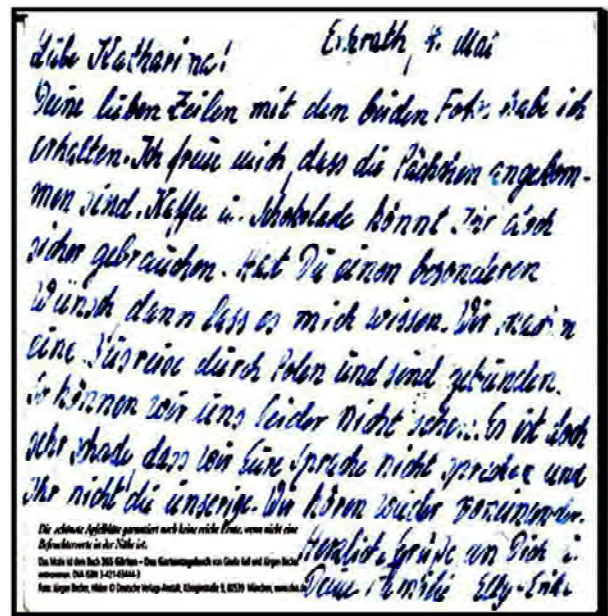 Erkrath, 4. Mai
Liebe Katharina!
Deine lieben Zeilen mit den beiden Fotos habe ich
erhalten. Ich freue mich, dass die Päckchen angekom-
men sind. Kaffee u. Schokolade könnt Ihr doch
sicher gebrauchen. Hast Du einen besonderen
Wunsch dann lass es mich wissen. Wir machen
eine Busreise durch Polen und sind gebunden.
So können wir uns leider nicht sehen. Es ist doch
sehr schade, dass wir Eure Sprache nicht sprechen und
Ihr nicht die unserige. Wir hören wieder voneinander.
Herzliche Grüße an Dich u.
Deine Familie Elly-Erika
Die schönste Apfelblüte garantiert noch keine reiche Ernte, wenn nicht eine
Befruchtersorte in der Nähe ist.
Das Motiv ist dem Buch 365 Gärten – Das Gartentagebuch von und Jürgen Becker
entnommen. DVA ISBN 3-421-03444-3
Foto: Jürgen Becker, Hilden © Deutsche Verlags-Anstalt, Königinstraße 9, 80539 München,